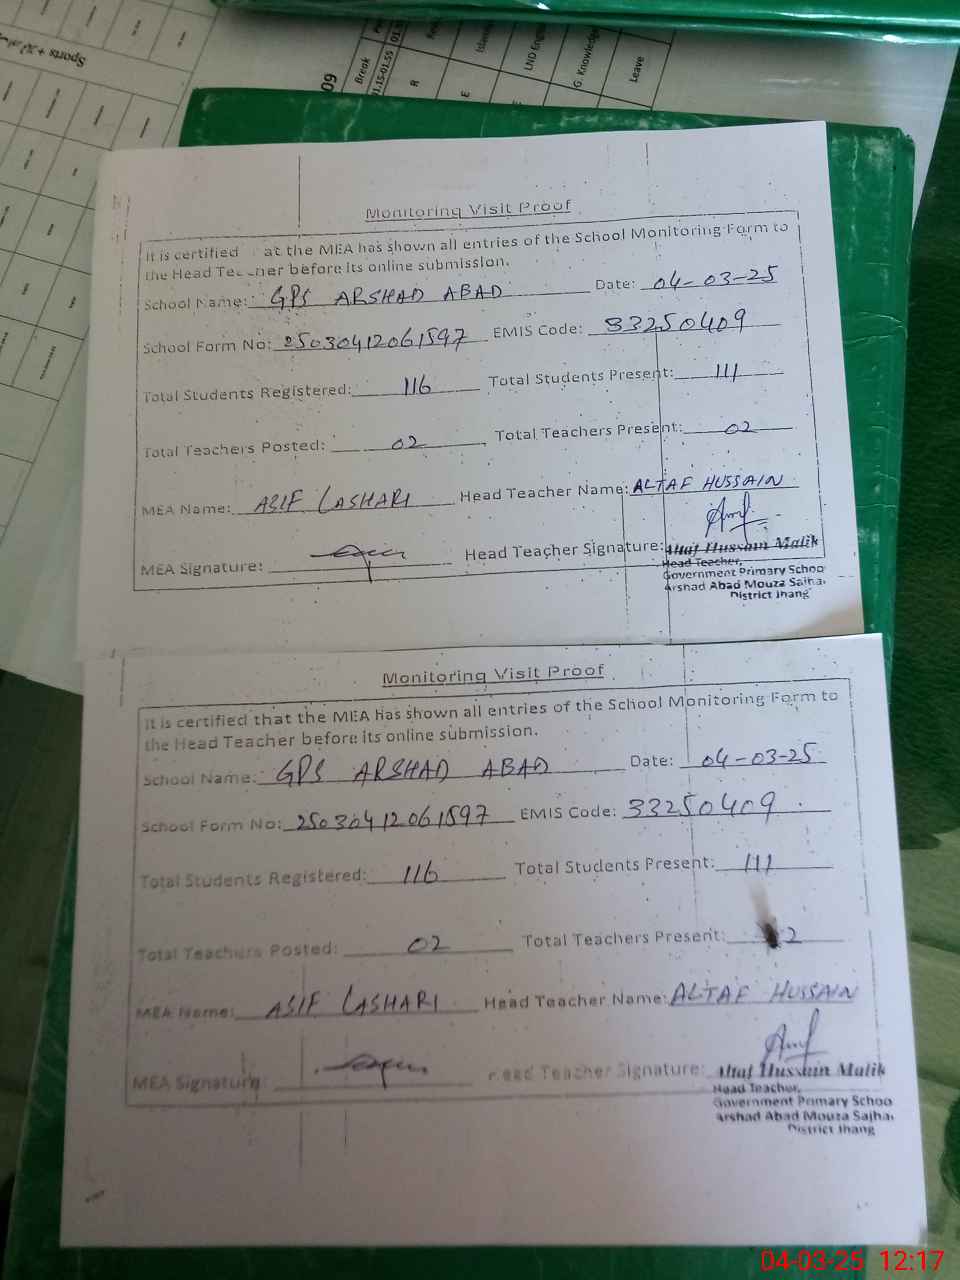 Sports +
09
Break
01.15-01.55
R
E
LND Eng
G. Knowledge
Leave
Monitoring Visit Proof
It is certified at the MEA has shown all entries of the School Monitoring Form to
the Head Teacher before its online submission.
School Name: GPS ARSHAD ABAD Date: 04-03-25
School Form No: 25030412061597 EMIS Code: 33250409
Total Students Registered: 116 Total Students Present: 111
Total Teachers Posted: 02 Total Teachers Present: 02
MEA Name: ASIF LASHARI Head Teacher Name: ALTAF HUSSAIN
MEA Signature: Head Teacher Signature: Altaf Hussain Malik
Head Teacher,
Government Primary Schoo
Arshad Abad Mouza Sajha
District Jhang
Monitoring Visit Proof
It is certified that the MEA has shown all entries of the School Monitoring Form to
the Head Teacher before its online submission.
School Name: GPS ARSHAD ABAD Date: 04-03-25
School Form No: 25030412061597 EMIS Code: 33250409
Total Students Registered: 116 Total Students Present: 111
Total Teachers Posted: 02 Total Teachers Present: 2
MEA Name: ASIF LASHARI Head Teacher Name: ALTAF HUSSAIN
MEA Signature: Head Teacher Signature: Altaf Hussain Malik
Head Teacher,
Government Primary Schoo
Arshad Abad Mouza Sajha
District Jhang
04-03-25 12:17